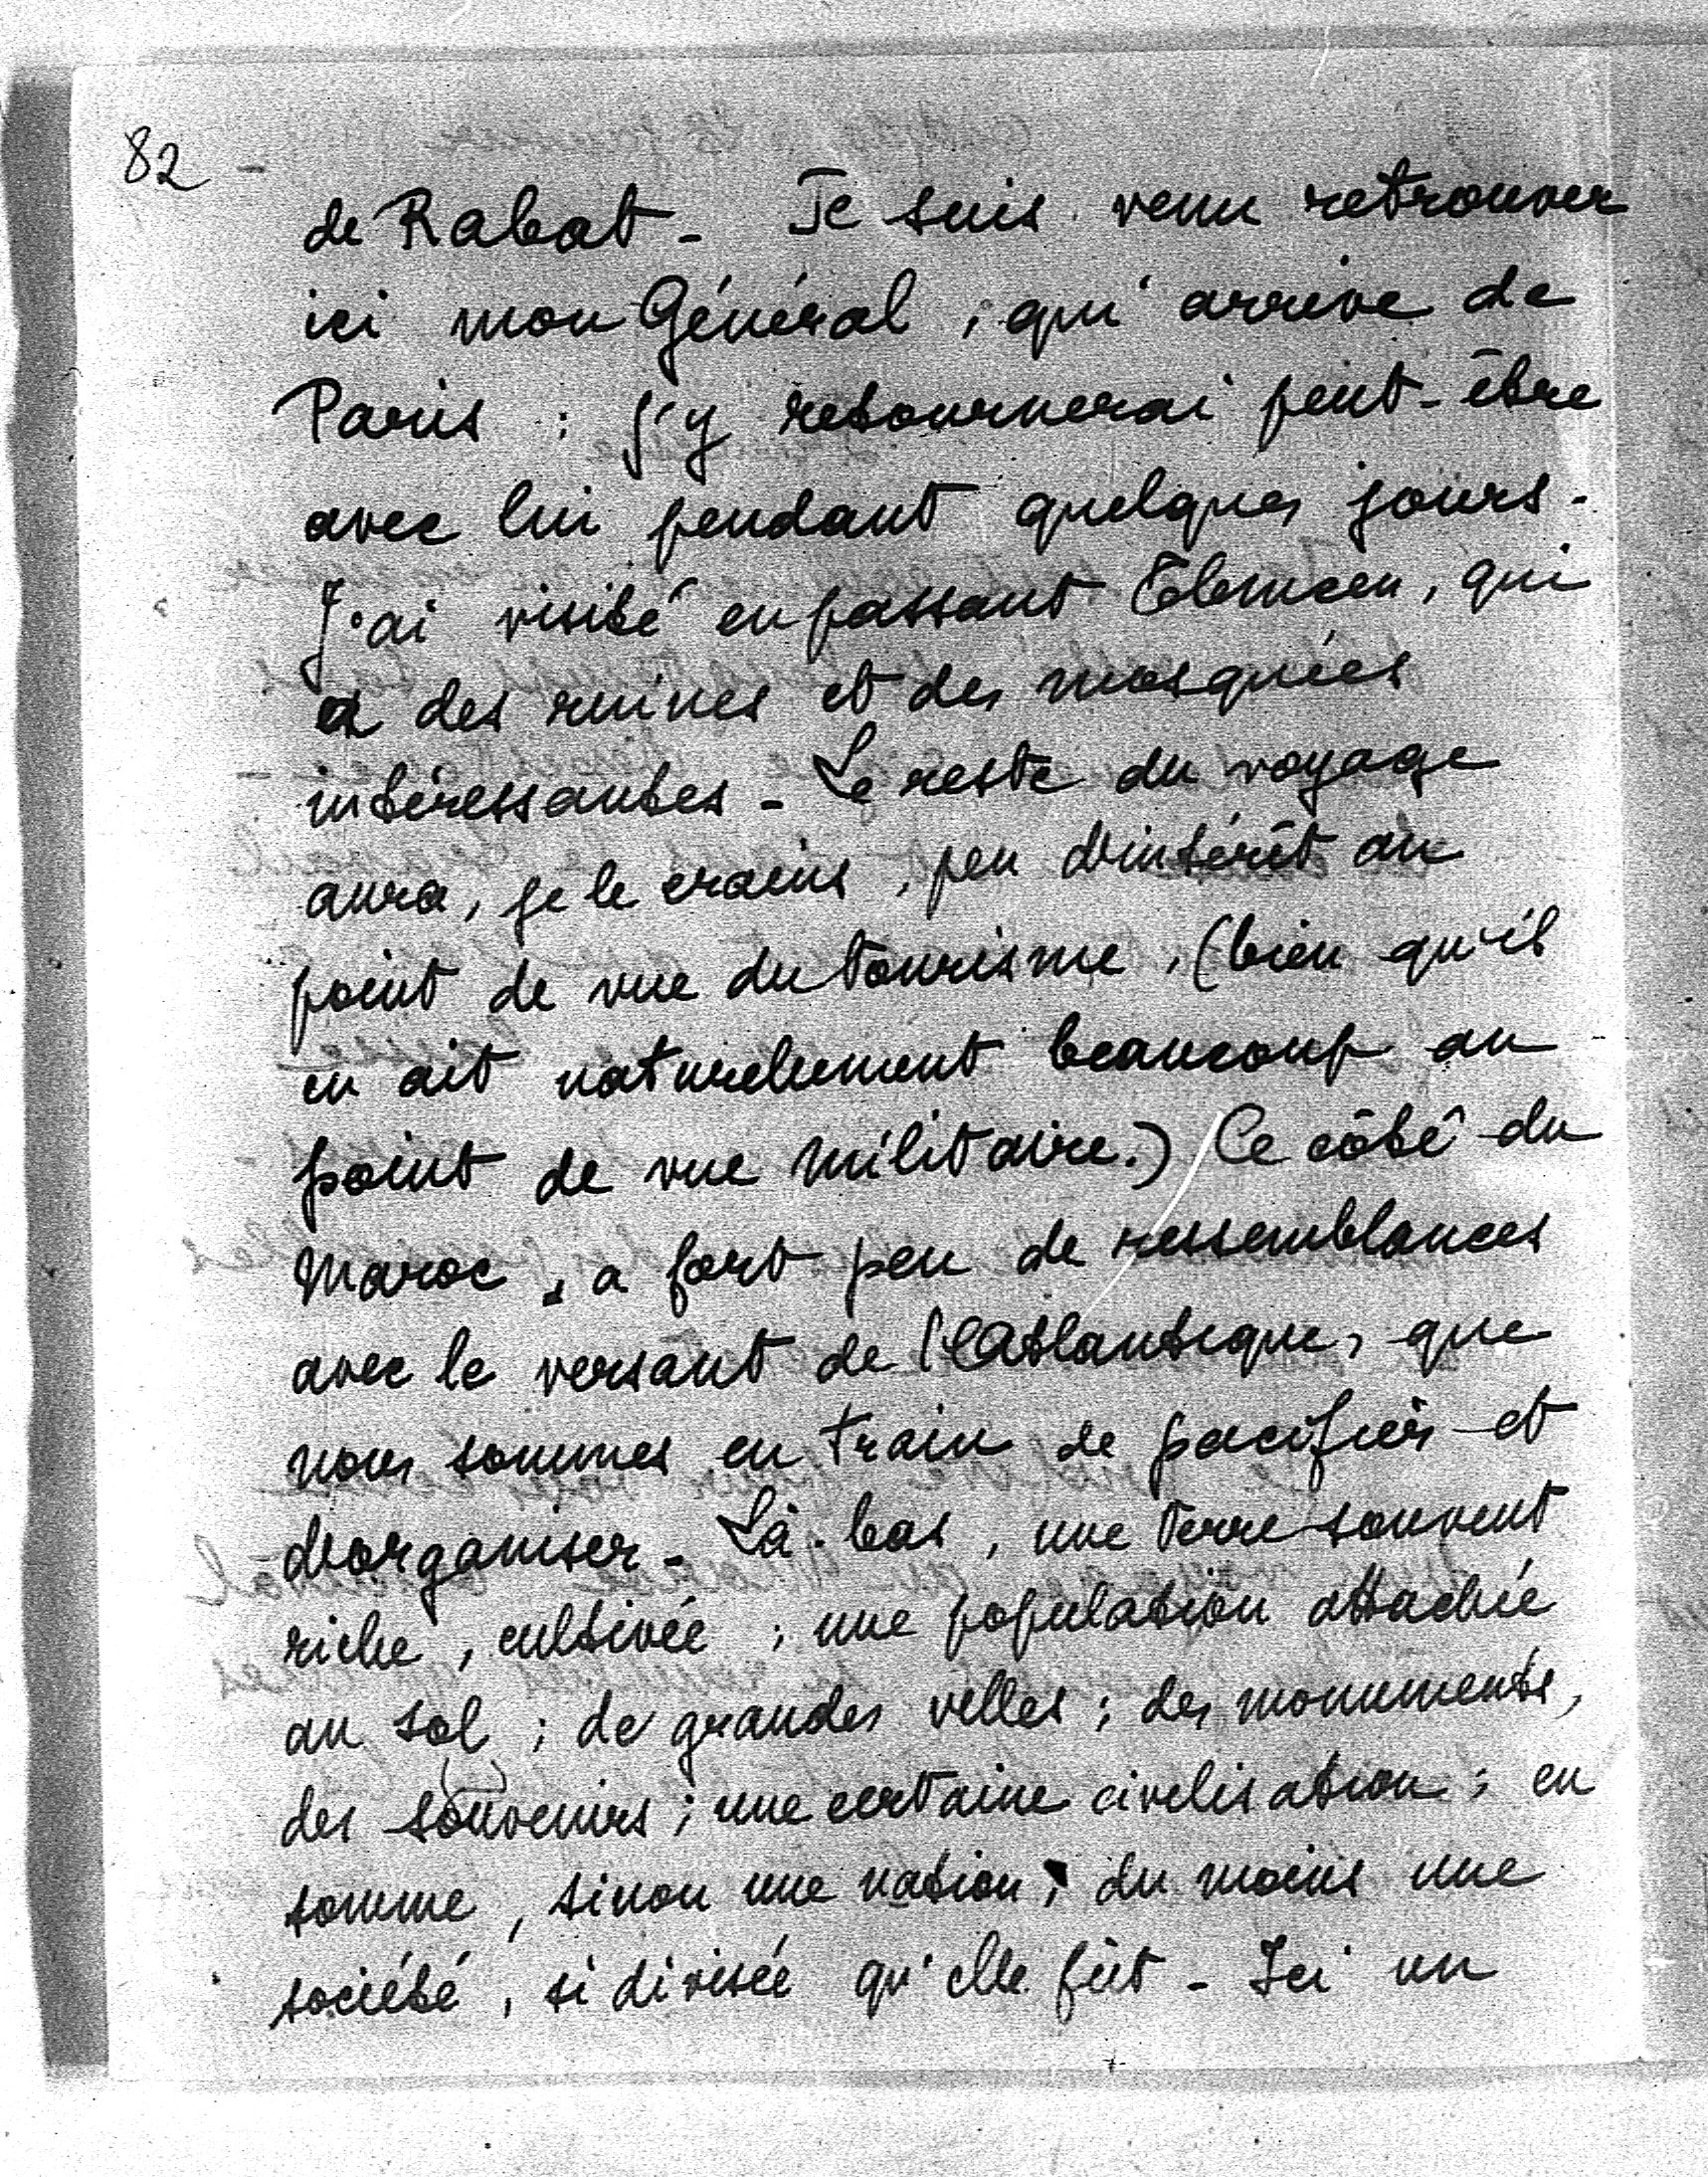 82 -
de Rabat - Je suis venu retrouver
ici mon Général, qui arrive de
Paris : j'y retournerai peut-être
avec lui pendant quelques jours.
J'ai visité en passant Tlemcen, qui
a des ruines et des mosquées
intéressantes - Le reste du voyage
aura, je le crains, peu d'intérêt au
point de vue du tourisme, (bien qu'il
en ait naturellement beaucoup au
point de vue militaire.) Ce côté du
Maroc, a fort peu de ressemblances
avec le versant de l'Atlantique, que
nous sommes en train de pacifier et
d'organiser - Là-bas, une terre souvent
riche, cultivée ; une population attachée
au sol ; de grandes villes ; des monuments,
des souvenirs ; une certaine civilisation ; en
somme, sinon une nation, du moins une
société, si divisée qu'elle fût - Ici un